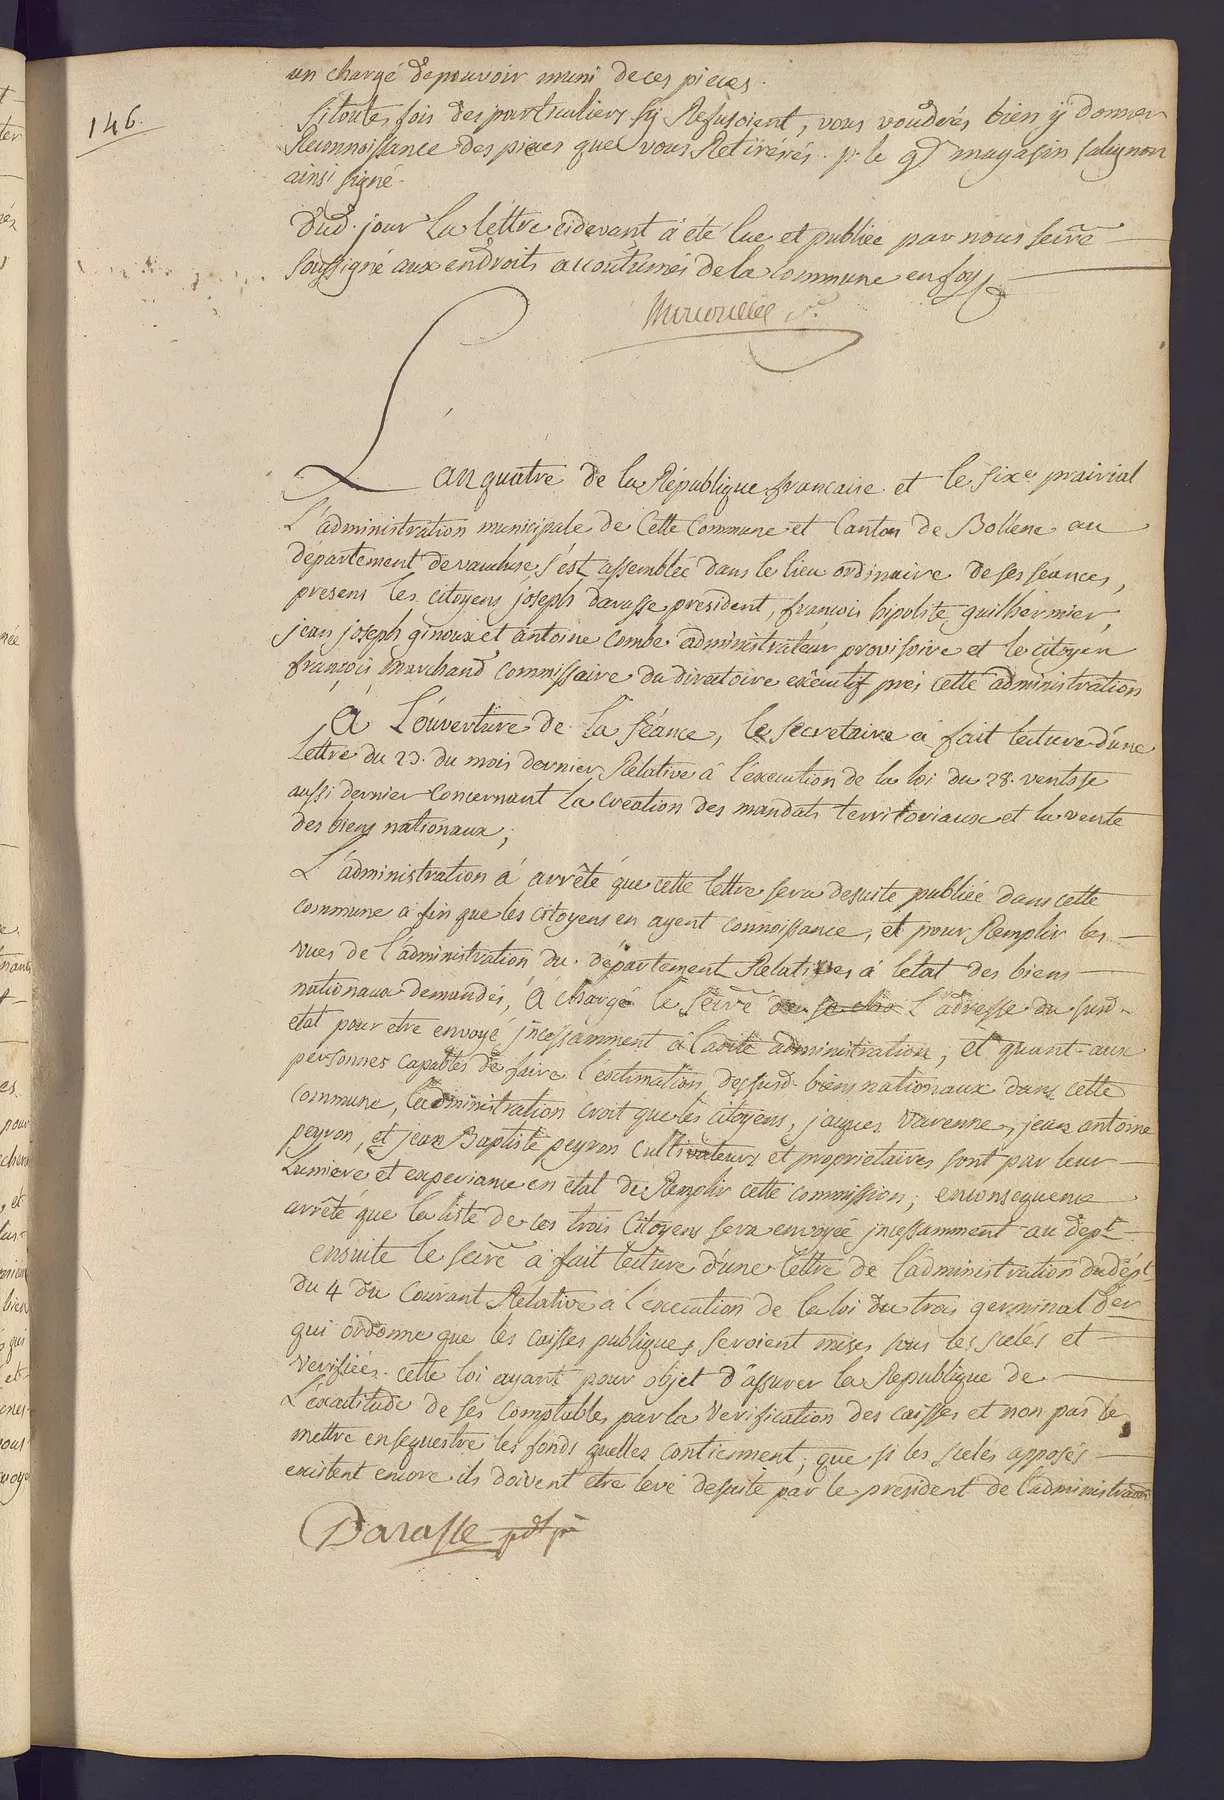 146.
un chargé depouvoir muni deces pieces.
si toutes fois des particuliers sy Refusoient, vous voudrés bien ÿ donner
Reconnoissance des pieces que vous Retirerés. pr. le gd magasin salignon
ainsi signé.
Dud. jour La lettre cidevant à été lue et publiée par nous secre
soussigné aux endroits accoutumés de la commune en foy
L'an quatre de la République francaise et le sixe prairial
L'administration municipale de cette Commune et Canton de Bollene au
département devaucluse s'est assemblée dans le lieu ordinaire de ses séances,
presens les citoyens joseph darasse president, françois hipolite guilhermier,
jean joseph ginoux et antoine combe administrateur provisoire et le citoyen
françois marchand commissaire du directoire exécutif près cette administration
À L'ouverture de la séance, le secretaire à fait lecture d'une
Lettre du 23. du mois dernier Relative à l'execution de la loi du 28. ventose
aussi dernier concernant la creation des mandats territoriaux et la vente
des biens nationaux;
L'administration à arrêté que cette lettre sera desuite publiée dans cette
commune a fin que les citoyens en ayent connoissance, et pour Remplir les
vues de l'administration du département Relatives à l'état des biens
nationaux demandés, à chargé le secre de L'adresse du susd.
etat pour etre envoyé incessamment à lad. administration, et quant aux
personnes capables de faire l'estimation desusd. biens nationaux dans cette
commune, l'administration croit que les citoyens, jaques varenne, jean antoine
peyron, et jean Baptiste peyron cultivateurs et proprietaires sont par leur
Lumiere et experiance en etat de Remplir cette commission; enconsequence
arrêté que la liste de ces trois Citoyens sera envoyée incessamment au dept
ensuite le secre à fait lecture d'une lettre de l'administration du dept
du 4 du Courant Relative à l'execution de la loi du trois germinal der
qui ordonne que les caisses publiques seroient mises sous les scelés et
verifiées. cette loi ayant pour objet d'assurer la Republique de
L'exactitude de ses comptables par la verification des caisses et non pas de
mettre ensequestre les fonds quelles contiennent; que si les scelés apposés
existent encore ils doivent etre levé desuite par le president de l'administration
Darasse pdt